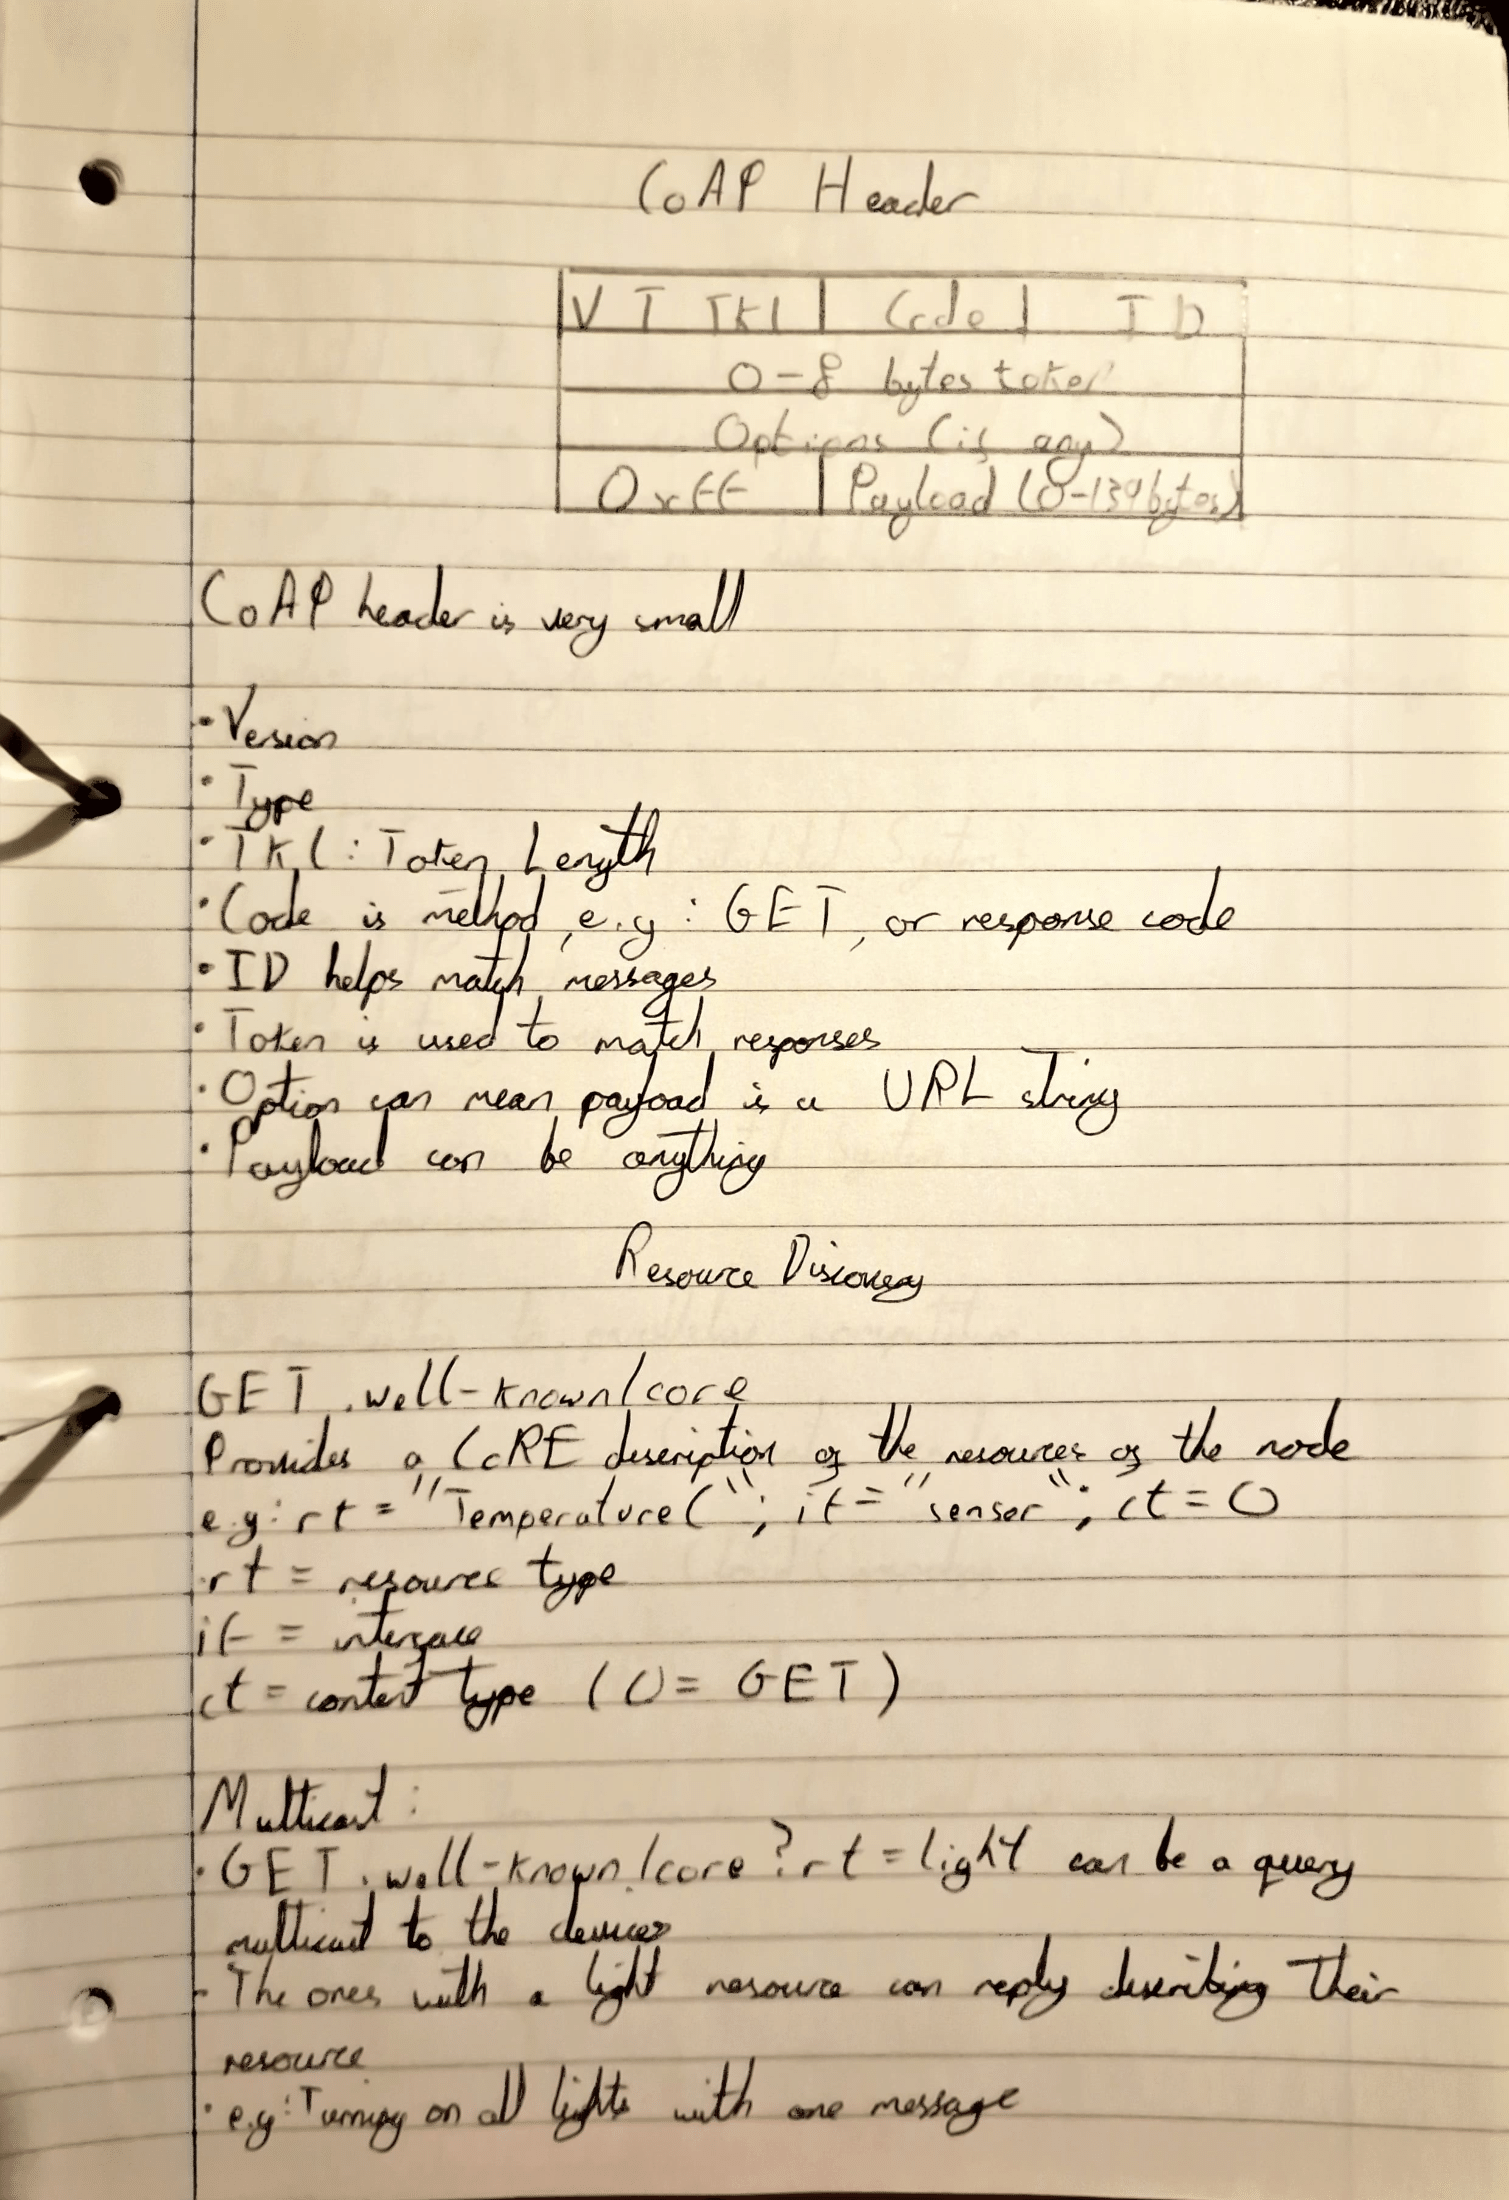 CoAP Header
V T TKL | Code | ID
0-8 bytes token
Options (if any)
0xFF | Payload (0-139 bytes)
CoAP header is very small
• Version
• Type
• TKL: Token Length
• Code is method, e.g: GET, or response code
• ID helps match messages
• Token is used to match responses
• Option can mean payload is a URL string
• Payload can be anything
Resource Discovery
GET .well-known/core
Provides a CoRE description of the resources of the node
e.g: rt = "TemperatureC"; if = "sensor"; ct = 0
rt = resource type
if = interface
ct = content type (0 = GET)
Multicast:
• GET .well-known/core?rt=light can be a query
multicast to the devices
• The ones with a light resource can reply describing their
resource
• e.g: Turning on all lights with one message